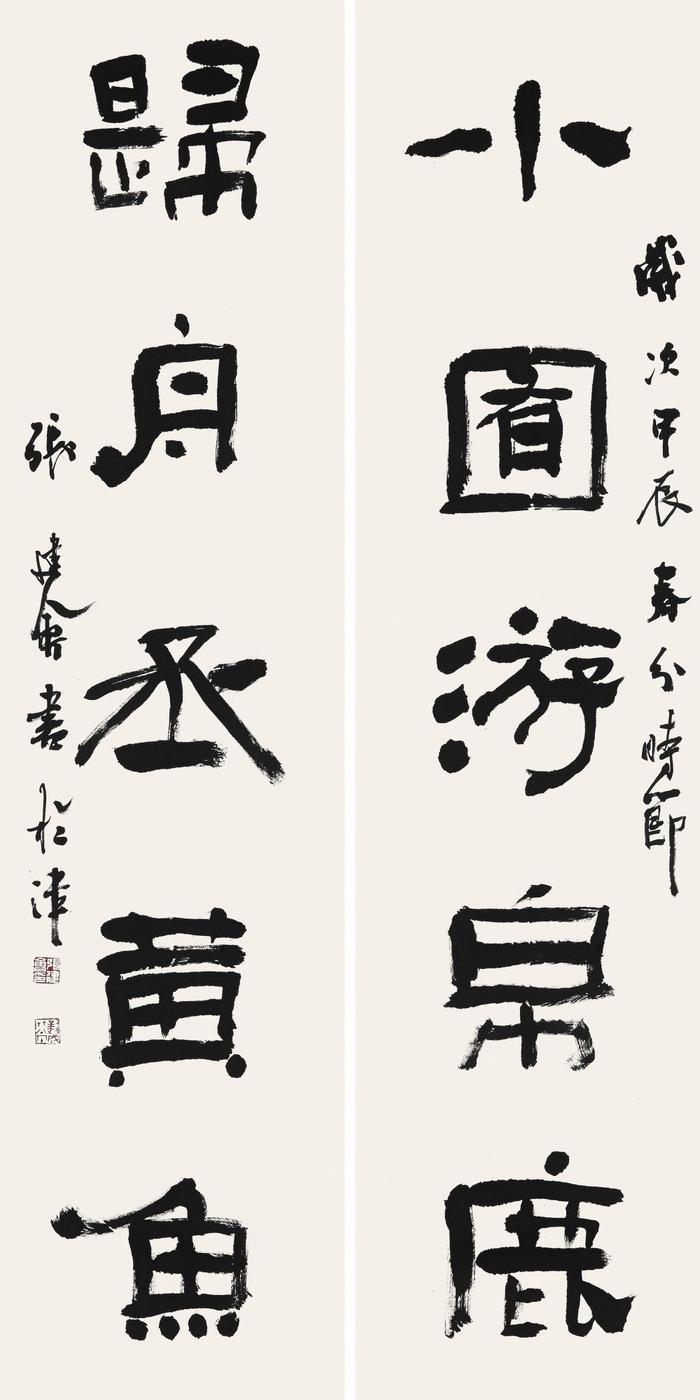 小囿游帛鹿
歲次甲辰春分時節
歸舟丞黃魚
張建會書於津